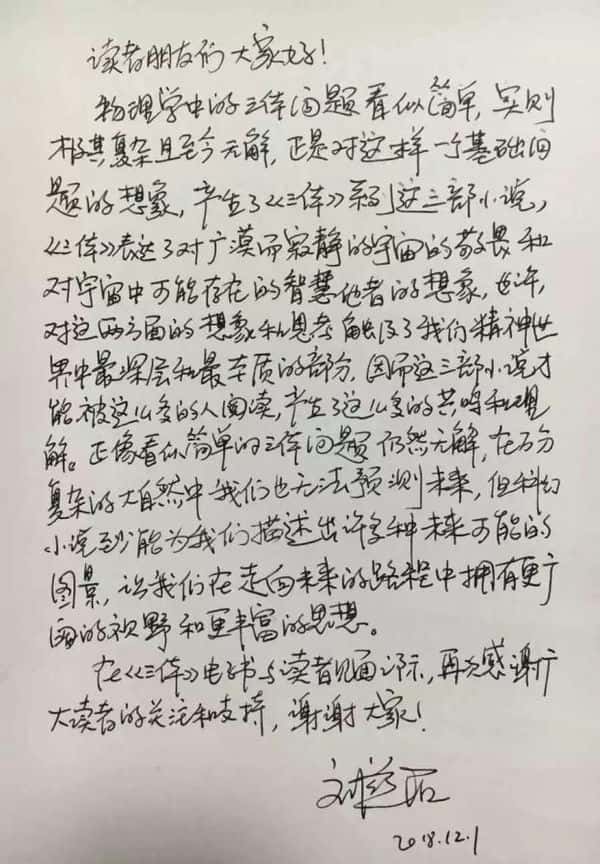 读者朋友们大家好！
物理学中的三体问题看似简单，实则
极其复杂且至今无解，正是对这样一个基础问
题的想象，产生了《三体》系列这三部小说，
《三体》表达了对广漠而寂静的宇宙的敬畏和
对宇宙中可能存在的智慧他者的想象，也许，
对这两方面的想象和思考触及了我们精神世
界中最深层和最本质的部分，因而这三部小说才
能被这么多的人阅读，产生了这么多的共鸣和理
解。正像看似简单的三体问题仍然无解，在万分
复杂的大自然中我们也无法预测未来，但科幻
小说至少能为我们描述出许多种未来可能的
图景，让我们在走向未来的路程中拥有更广
阔的视野和更丰富的思想。
在《三体》电子书与读者见面之际，再次感谢广
大读者的关注和支持，谢谢大家！
刘慈欣
2018.12.1